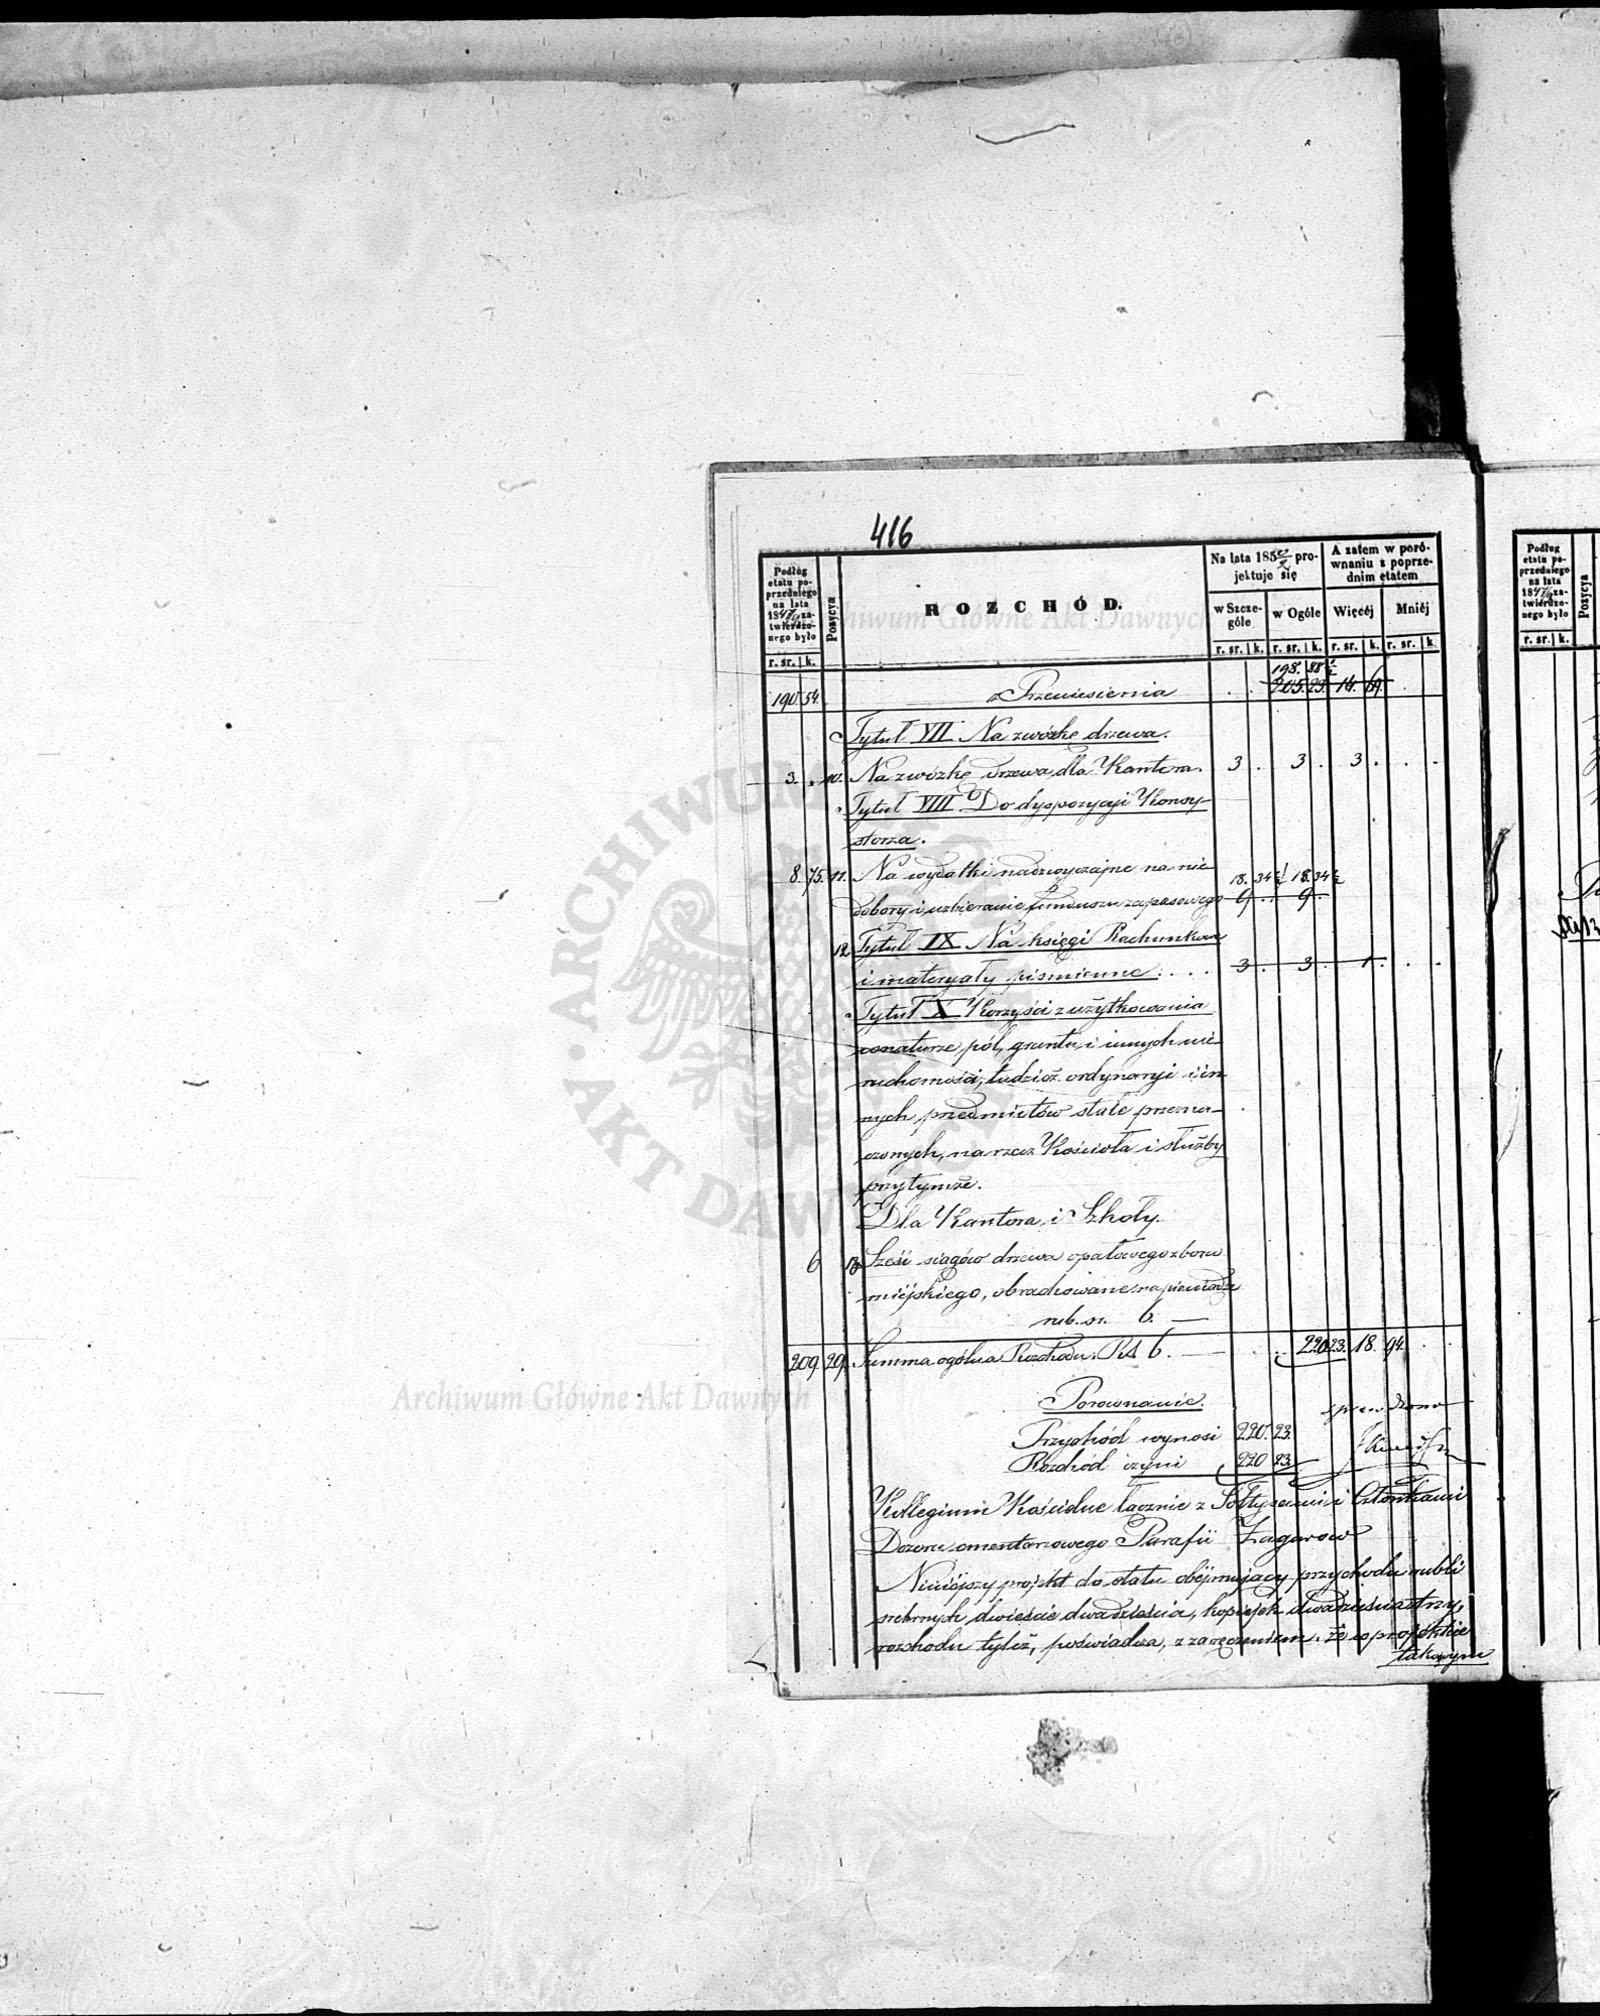 416
Podług etatu poprzedniego na lata 1847/9 zatwierdzonego było
Pozycya
ROZCHÓD.
Na lata 185 projektuje się
A zatem w porównaniu z poprzednim etatem
w Szczególe
w Ogóle
Więcéj
Mniéj
r. sr. k. r. sr. k. r. sr. k. r. sr. k. r. sr. k.
198. 88 1/2
190. 54. z Przeniesienia 205. 29. 14. 69.
Tytuł VII Na zwózkę drzewa.
3. 10. Na zwózkę drzewa dla Kantora. 3 . 3 . 3 .
Tytuł VIII Do dyspozycyi Konsy-
storza.
8. 75. 11. Na wydatki nadzwyczajne na nie- 18. 34 1/2 18. 34 1/2
dobory i uzbieranie funduszu zapasowego 9 . 9 .
12 Tytuł IX Na księgi Rachunkowe
i materyały piśmienne . . . . 3 . 3 . 1 .
Tytuł X Korzyści z użytkowania
w naturze pól, gruntu, i innych nie-
ruchomości, tudzież ordynaryi i in-
nych przedmiotów stale przezna-
czonych, na rzecz Kościoła i służby
przy tymże.
Dla Kantora i Szkoły.
6 13 Sześć siągów drzewa opałowego z boru
miéjskiego, obrachowane na pieniądze
rub. sr. 6. —
209. 29. Summa ogólna Rozchodu. RS 6. — 220 23. 18. 94.
Porównanie.
sprawdzono
Przychód wynosi 220. 23.
Rozchód czyni 220 23.
Kollegium Kościelne łącznie z Sołtysami i Członkami
Dozoru cmentarzowego Parafii Zagorow
Niniéjszy projekt do etatu obéjmujący przychodu rubli
srebrnych dwieście dwadzieścia, kopiejek dwadzieścia trzy,
rozchodu tyleż, poświadcza, z zaręczeniem, że w projekcie
takowym
Podług etatu poprzedniego na lata 1847/9 zatwierdzonego było
Pozycya
r. sr. k.